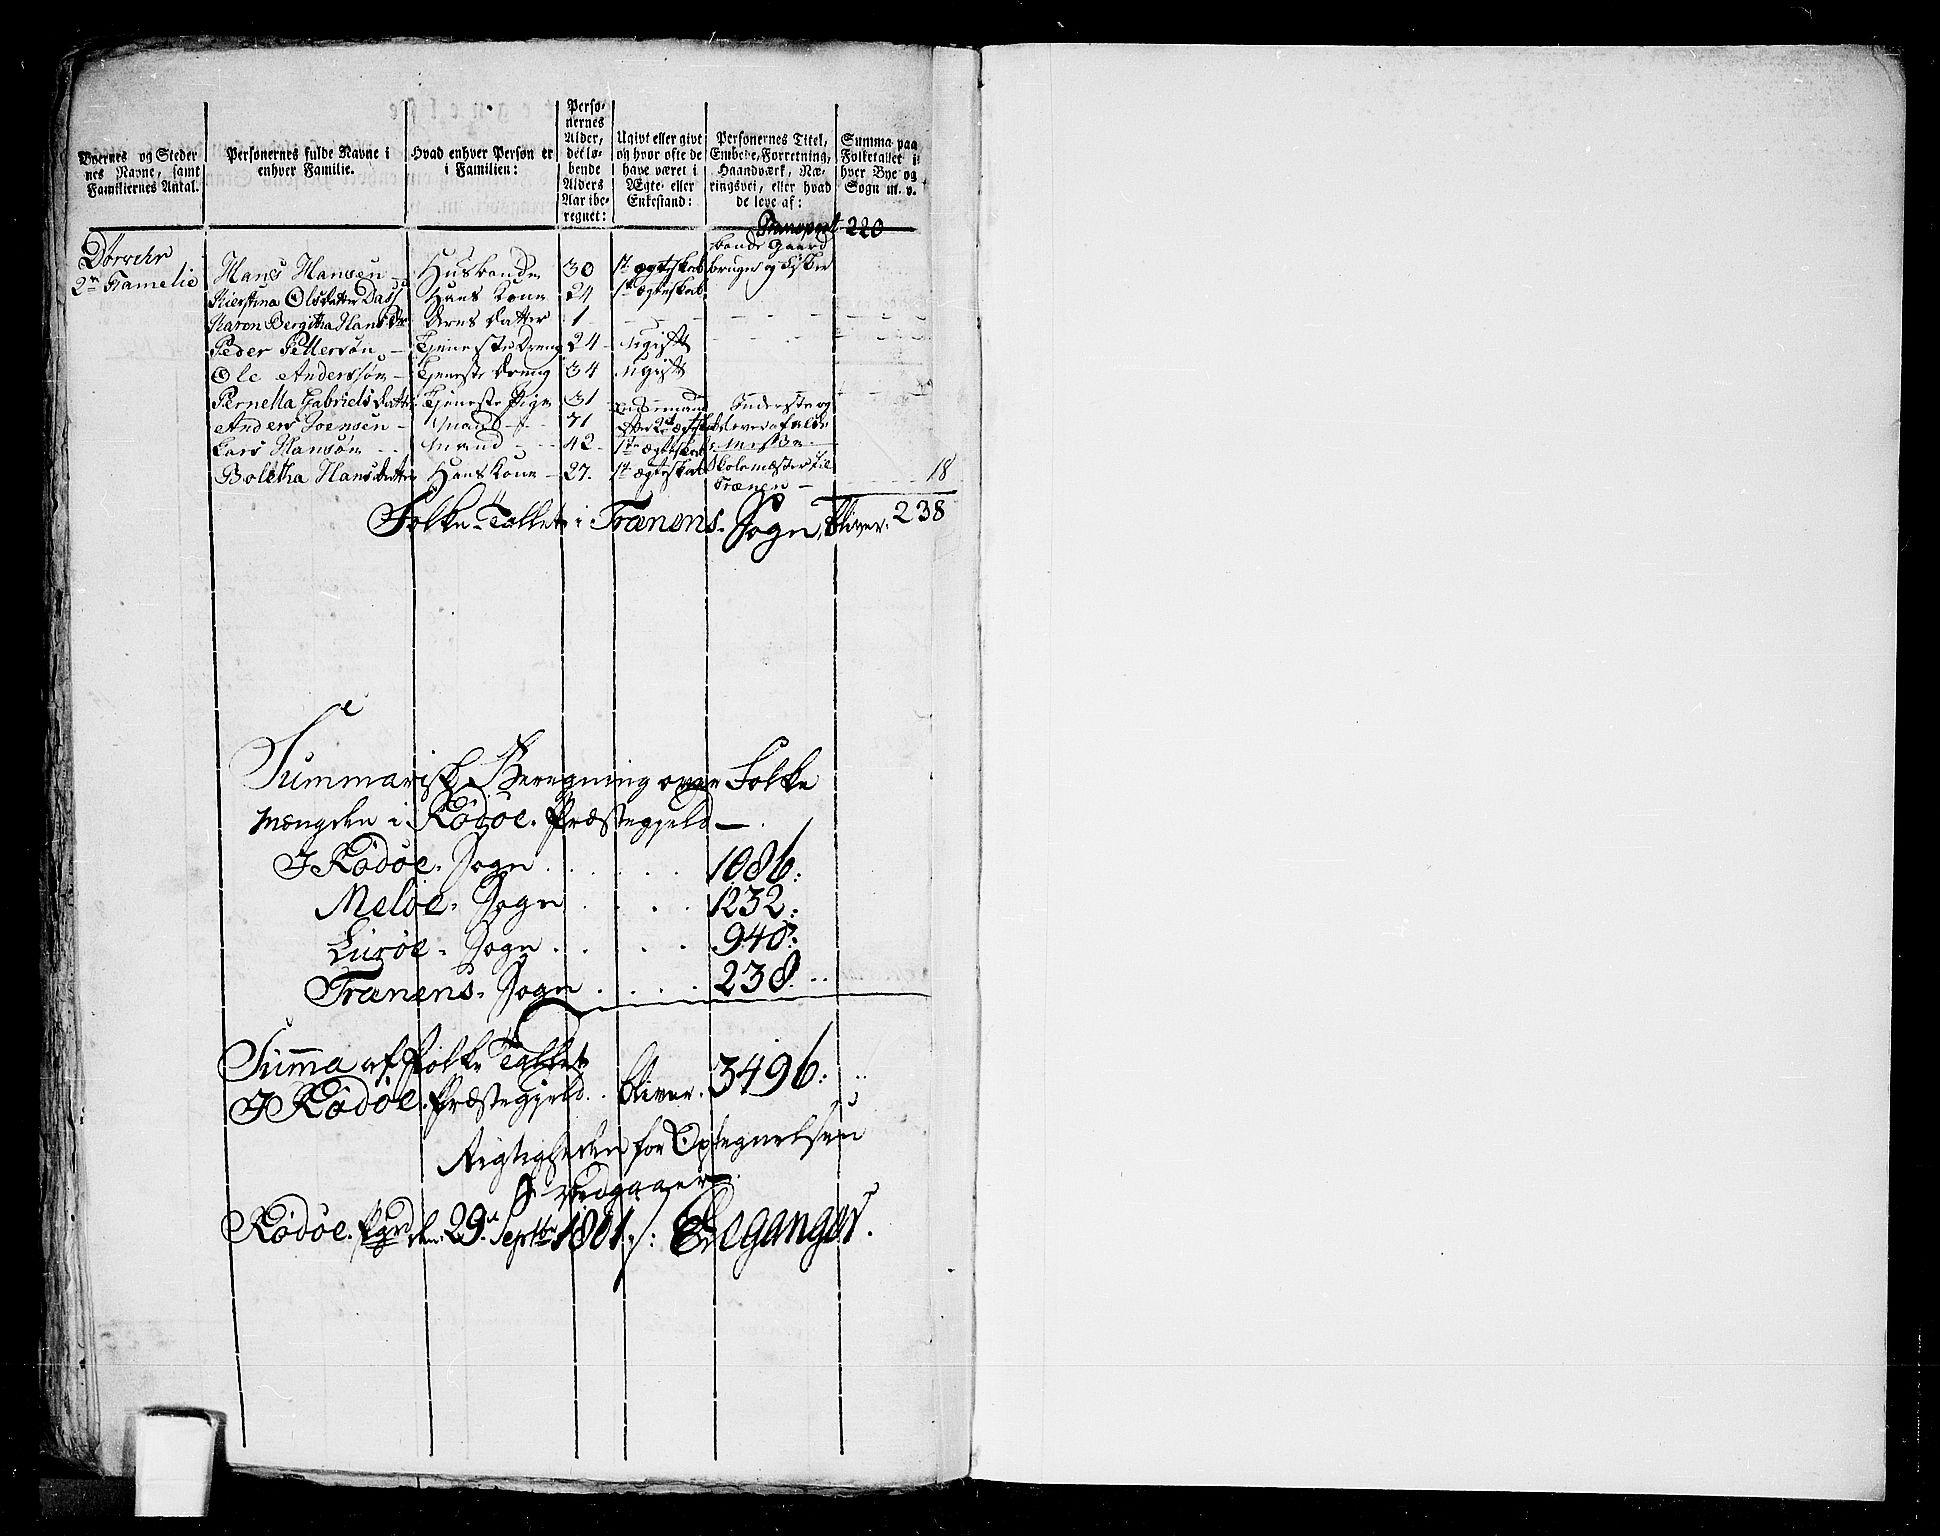 Byernes og Steder
nes Navne, samt
Familiernes Antal.
Personernes fulde Navne i
enhver Familie.
Hvad enhver Person er
i Familien:
Perso-
nernes
Alder,
det lø-
bende
Alders
Aar ibe-
regnet:
Ugivt eller givt
og hvor ofte de
have været i
Ægte- eller
Enkestand:
Personernes Titel,
Embede, Forretning,
Haandværk, Næ-
ringsvei, eller hvad
de leve af:
Summa paa
Folketallet i
hver Bye og
Sogn m. v.
Transport 220
Dørvehr
2den Famelie
Hans Hansen Husbonde 30 1te ægteskab bonde Gaard bruger og Fisker
Kierstina Olsdatter Dass Hans Kone 24 1te ægteskab
Karen Bergitha Hansdr deres datter 1
Peder Pettersøn Tjeneste dreng 24 ugift
Ole Anderssøn Tjeneste dreng 34 ugift
Pernella Gabrielsdatter Tjeneste Pige 31
Anders Joensen Mand 71
Lars Hansøn Mand 42 1te ægteskab
Bolitha Hansdatter Hans Kone 27. 1te ægteskab Skolemæster til
Trænen 18
Folke-Tallet i Trænens Sogn bliver 238
Summarisk Beregning over Folke
Mængden i Rödöe Præstegjeld
I Rödöe Sogn 1086:
Melöe Sogn 1232:
Luröe Sogn 940:
Trænens Sogn 238
Summa af Folke Tallet
I Rödöe Præstegjeld bliver 3496:
Rigtigheden for Optegnelsen
vedgaaer
Rödöe Pgrd den 29de Septbr 1801 /: Angell